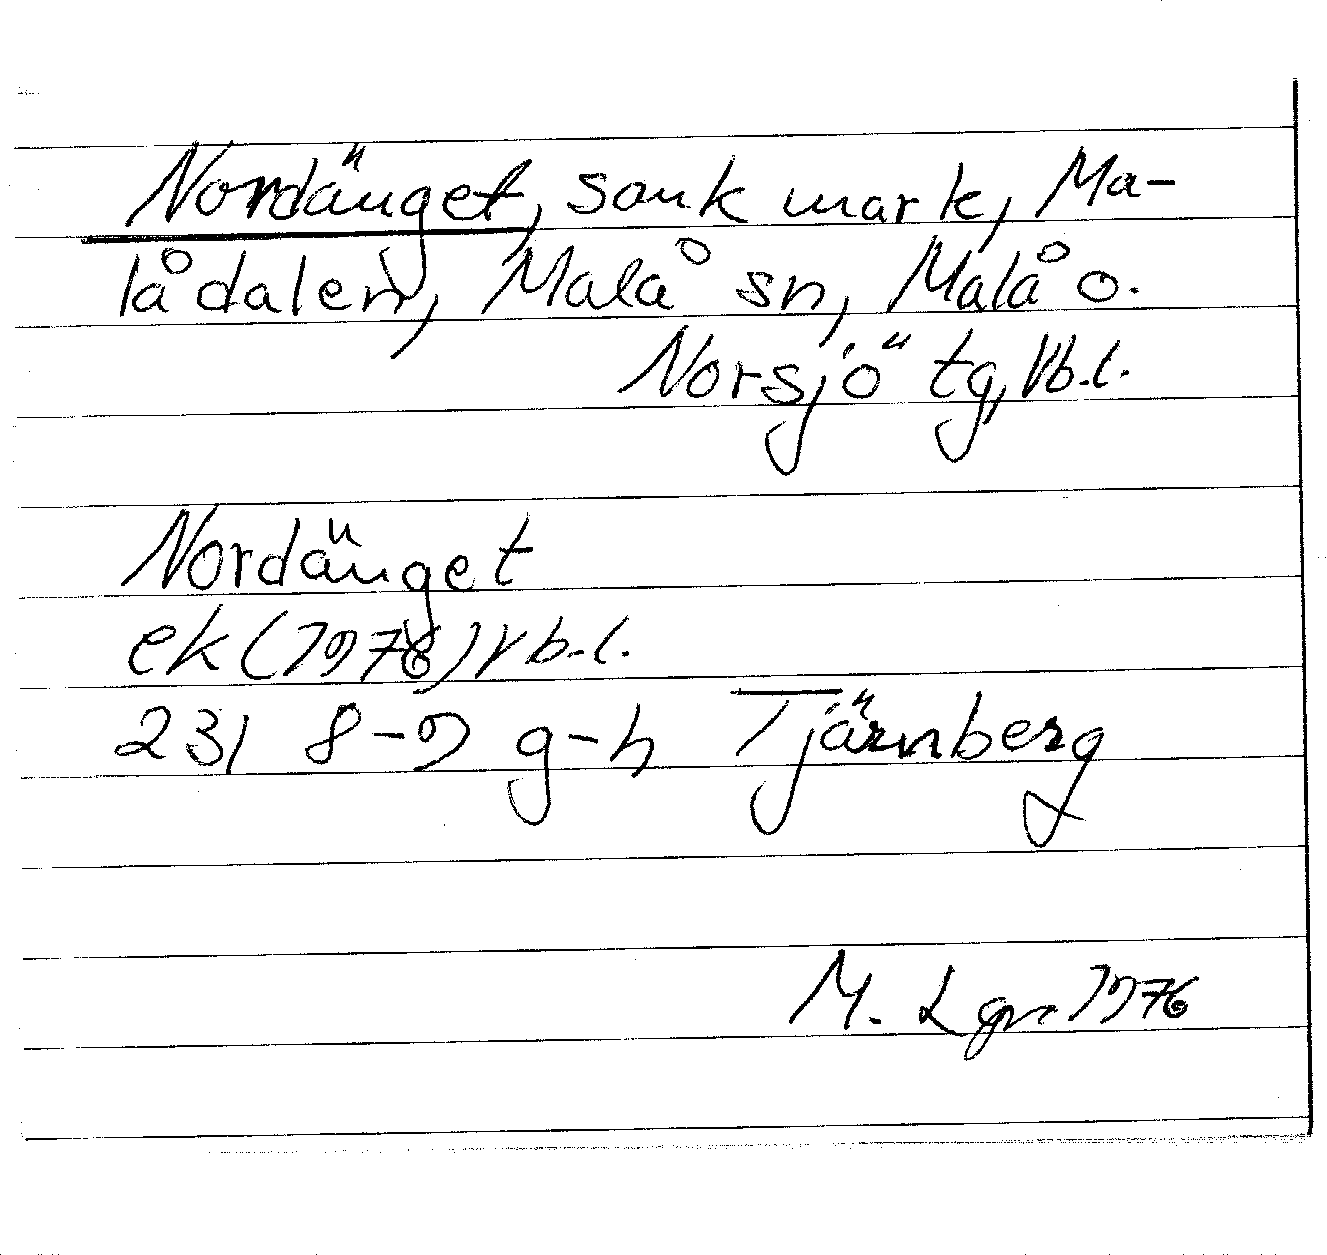 Nordänget, sank mark, Ma-
lådalen, Malå sn, Malå o.
Norsjö tg, Vb.l.
Nordänget
ek (1976) Vb.l.
231 8-9 g-h Tjärnberg
M. Lgr 1976